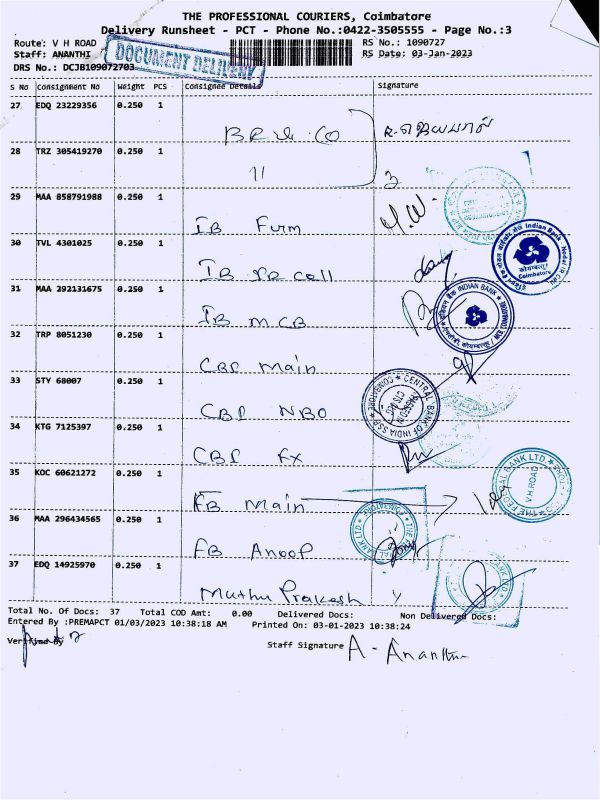 THE PROFESSIONAL COURIERS, Coimbatore
Delivery Runsheet - PCT - Phone No.:0422-3505555 - Page No.:3
Route: V H ROAD RS No.: 1090727
Staff: ANANTHI RS Date: 03-Jan-2023
DRS No.: DCJB109072703
DOCUMENT DELIVERY
S No Consignment No Weight PCS Consignee Details Signature
27 EDQ 23229356 0.250 1
28 TRZ 305419270 0.250 1
11
29 MAA 858791988 0.250 1
IB Furm
30 TVL 4301025 0.250 1
IB
31 MAA 292131675 0.250 1
IB MCB
32 TRP 8051230 0.250 1
CBI Main
33 STY 68007 0.250 1
CBI NBO
34 KTG 7125397 0.250 1
CBI FX
35 KOC 60621272 0.250 1
FB Main
36 MAA 296434565 0.250 1
FB Anoop
37 EDQ 14925970 0.250 1
Muthu Prakash
Total No. Of Docs: 37 Total COD Amt: 0.00 Delivered Docs: Non Delivered Docs:
Entered By :PREMAPCT 01/03/2023 10:38:18 AM Printed On: 03-01-2023 10:38:24
Verified By Staff Signature A. Ananthi
Indian Bank
कोयम्बत्तूर
Coimbatore
INDIAN BANK
CENTRAL BANK OF INDIA
COIMBATORE
THE FEDERAL BANK LTD.
V.H.ROAD